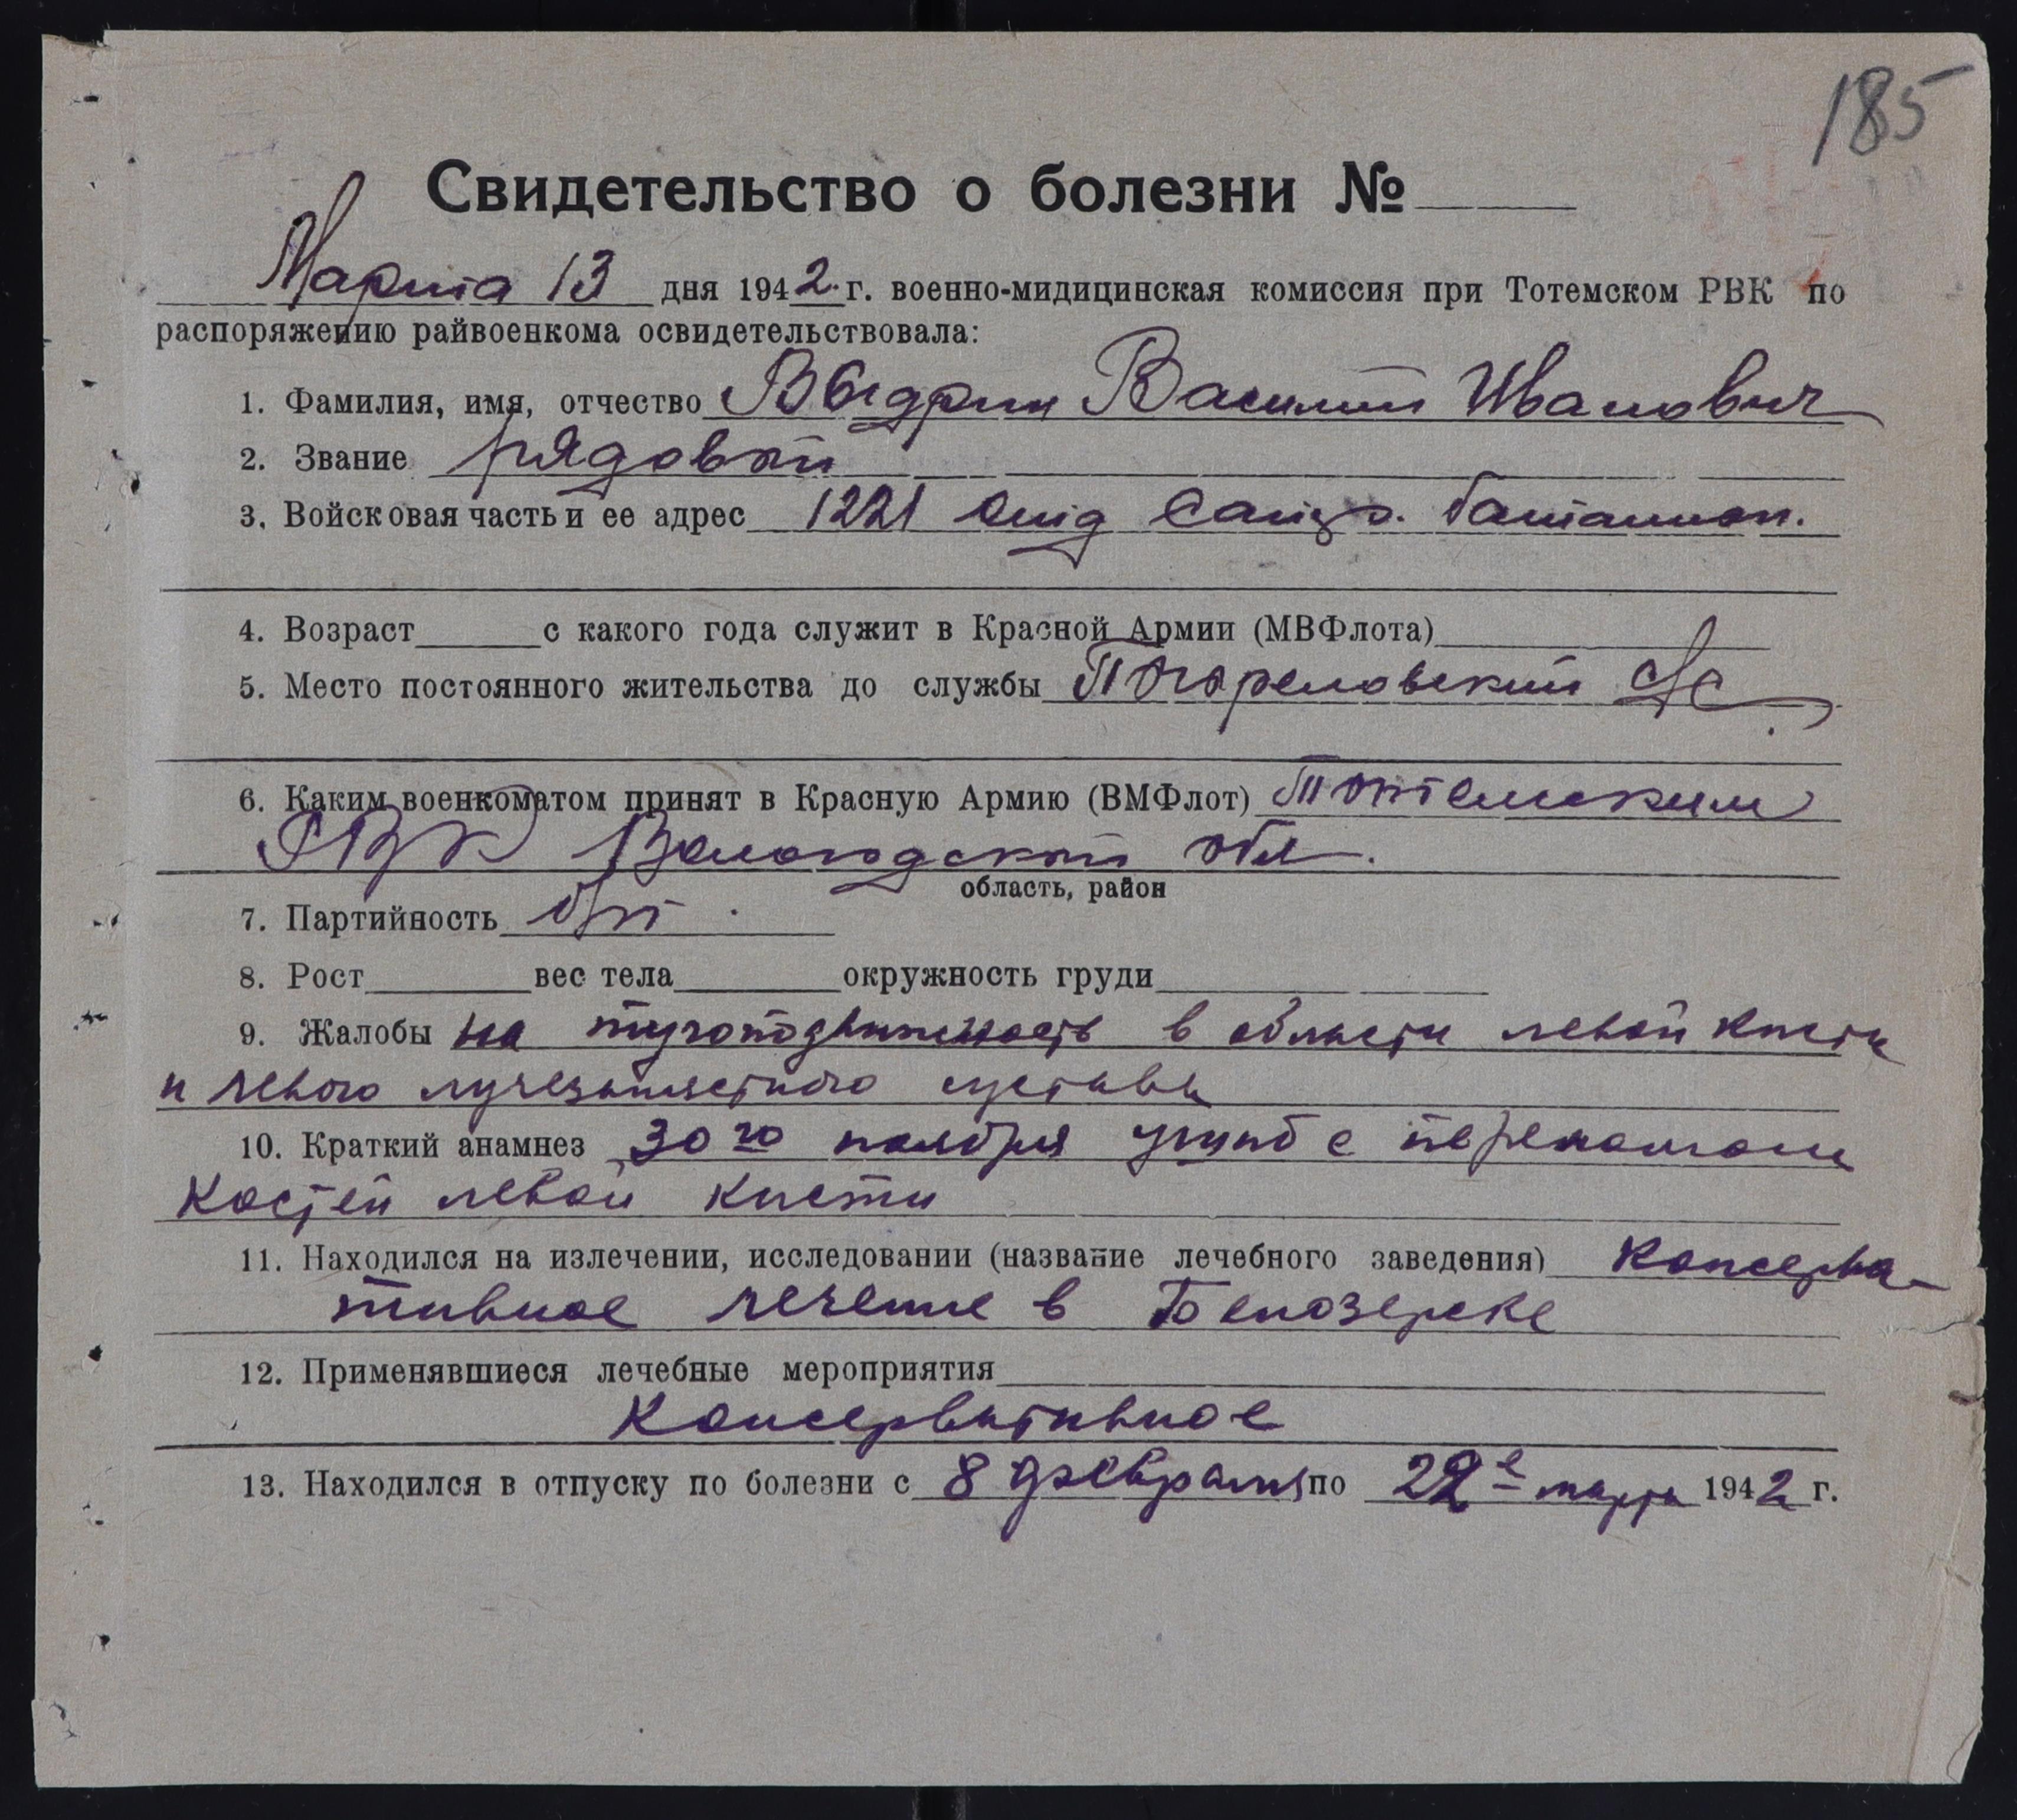 185
Свидетельство о болезни №
Марта 13 дня 1942 г. военно-мидицинская комиссия при Тотемском РВК по
распоряжению райвоенкома освидетельствовала:
1. Фамилия, имя, отчество Выдрин Василий Иванович
2. Звание рядовый
3. Войсковая часть и ее адрес 1221 батальон.
4. Возраст с какого года служит в Красной Армии (МВФлота)
5. Место постоянного жительства до службы Погореловский с/с
6. Каким военкоматом принят в Красную Армию (ВМФлот) Тотемским
РВК Вологодской обл.
область, район
7. Партийность б/п
8. Рост вес тела окружность груди
9. Жалобы на тугоподвижность в области левой кисти
и левого лучезапястного сустава
10. Краткий анамнез 30го ноября ушиб с переломом
костей левой кисти
11. Находился на излечении, исследовании (название лечебного заведения) Консерва-
тивное лечение в Белозерске
12. Применявшиеся лечебные мероприятия
Консервативное
13. Находился в отпуску по болезни с 8 февраля по 22е марта 1942 г.